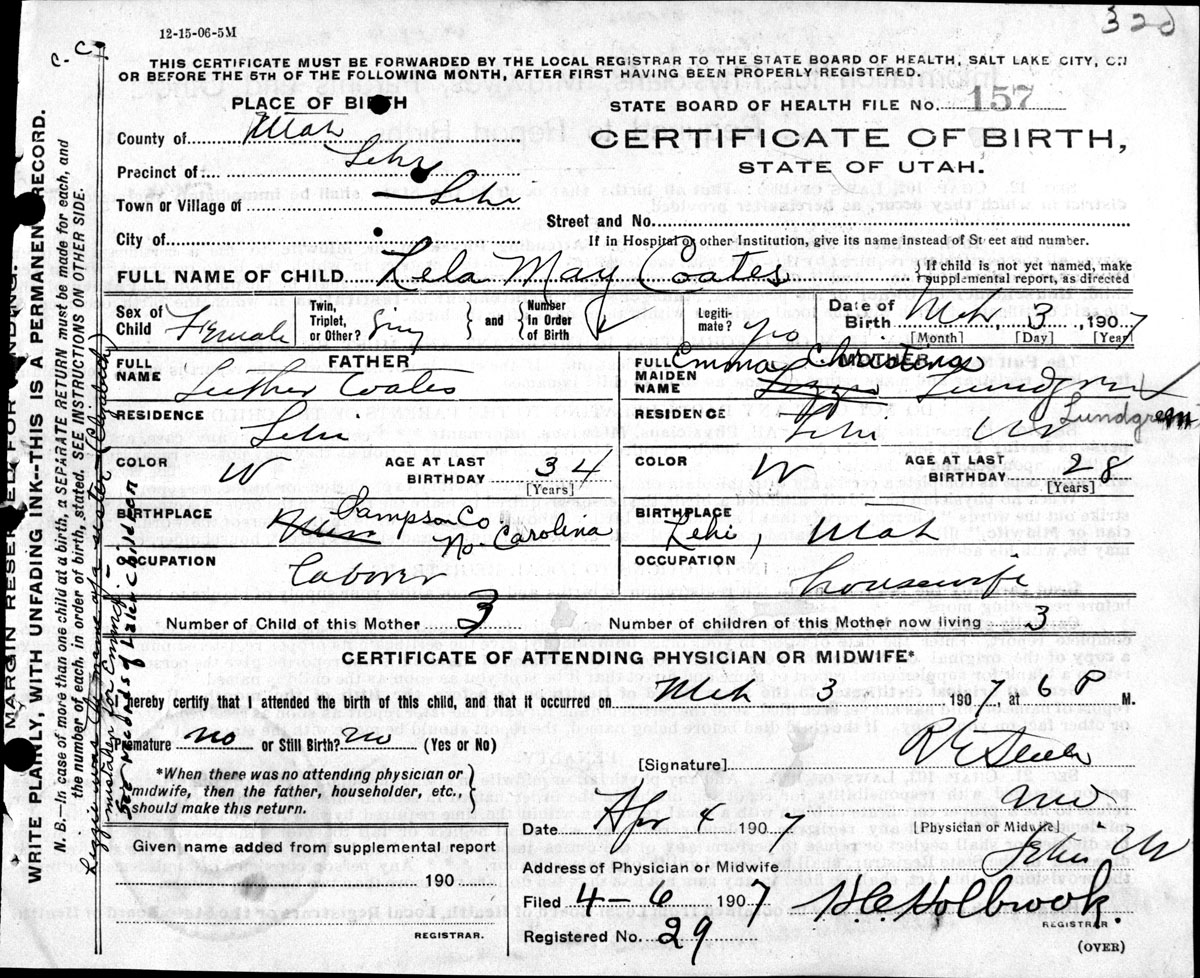 320
12-15-06-5M
C. C.
THIS CERTIFICATE MUST BE FORWARDED BY THE LOCAL REGISTRAR TO THE STATE BOARD OF HEALTH, SALT LAKE CITY, ON
OR BEFORE THE 5TH OF THE FOLLOWING MONTH, AFTER FIRST HAVING BEEN PROPERLY REGISTERED.
PLACE OF BIRTH
STATE BOARD OF HEALTH FILE No. 157
County of Utah
CERTIFICATE OF BIRTH,
STATE OF UTAH.
Precinct of Lehi
Town or Village of Lehi
Street and No.
City of
If in Hospital or other Institution, give its name instead of Street and number.
FULL NAME OF CHILD Lela May Coates
} If child is not yet named, make supplemental report, as directed
Sex of Child Female
Twin, Triplet, or Other? Sing
} and { Number In Order of Birth
Legitimate? yes
Date of Birth Mch, 3, 1907
[Month] [Day] [Year]
FATHER
FULL NAME Luther Coates
MOTHER
FULL MAIDEN NAME Emma Christina Lizzie Lundgren
Lundgren
RESIDENCE Lehi
RESIDENCE Lehi Ut
COLOR W AGE AT LAST BIRTHDAY 34 [Years]
COLOR W AGE AT LAST BIRTHDAY 28 [Years]
BIRTHPLACE Sampson Co. No. Carolina
BIRTHPLACE Lehi, Utah
OCCUPATION laborer
OCCUPATION housewife
Number of Child of this Mother 3
Number of children of this Mother now living 3
CERTIFICATE OF ATTENDING PHYSICIAN OR MIDWIFE*
I hereby certify that I attended the birth of this child, and that it occurred on Mch 3 1907, at 6 P M.
Premature no or Still Birth? no (Yes or No)
[Signature] R E Steele
MD
[Physician or Midwife]
*When there was no attending physician or
midwife, then the father, householder, etc.,
should make this return.
Date Apr 4 1907
Given name added from supplemental report
Address of Physician or Midwife Lehi Ut
190
Filed 4-6 1907 H.C. Holbrook.
REGISTRAR.
Registered No. 29
REGISTRAR.
(OVER)
MARGIN RESERVED FOR BINDING.
WRITE PLAINLY, WITH UNFADING INK--THIS IS A PERMANENT RECORD.
N. B.—In case of more than one child at a birth, a SEPARATE RETURN must be made for each, and
the number of each, in order of birth, stated. SEE INSTRUCTIONS ON OTHER SIDE.
Lizzie was the name of a sister (Elizabeth)
mistaken for Emma;—
See Records of later children